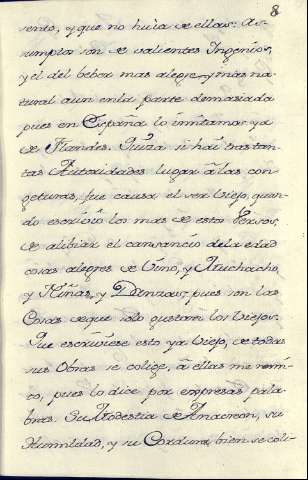 8
sento, y que no huìa de ellas: As-
sumptos son de valientes Ingenios,
y el del beber mas alegre, y mas na-
tural aun en la parte demasiada
pues en España lo imitamos ya
de Flandes. Quiza si haì bastan-
tas Autoridades lugar à las con-
geturas, fue causa el ser Viejo, quan-
do escriviò los mas de estos Versos,
de alibiar el cansancio de la edad
cosas alegres de Vino, y Muchachos,
y Niñas, y Danzas, pues son las
Cosas de que solo gustan los Viejos.
Que escriviese esto ya Viejo, de todas
sus Obras se colige, à ellas me remi-
to, pues lo dice por expresas pala-
bras. Su Modestia de Anacreon, su
Humildad, y su Cordura, bien se coli-